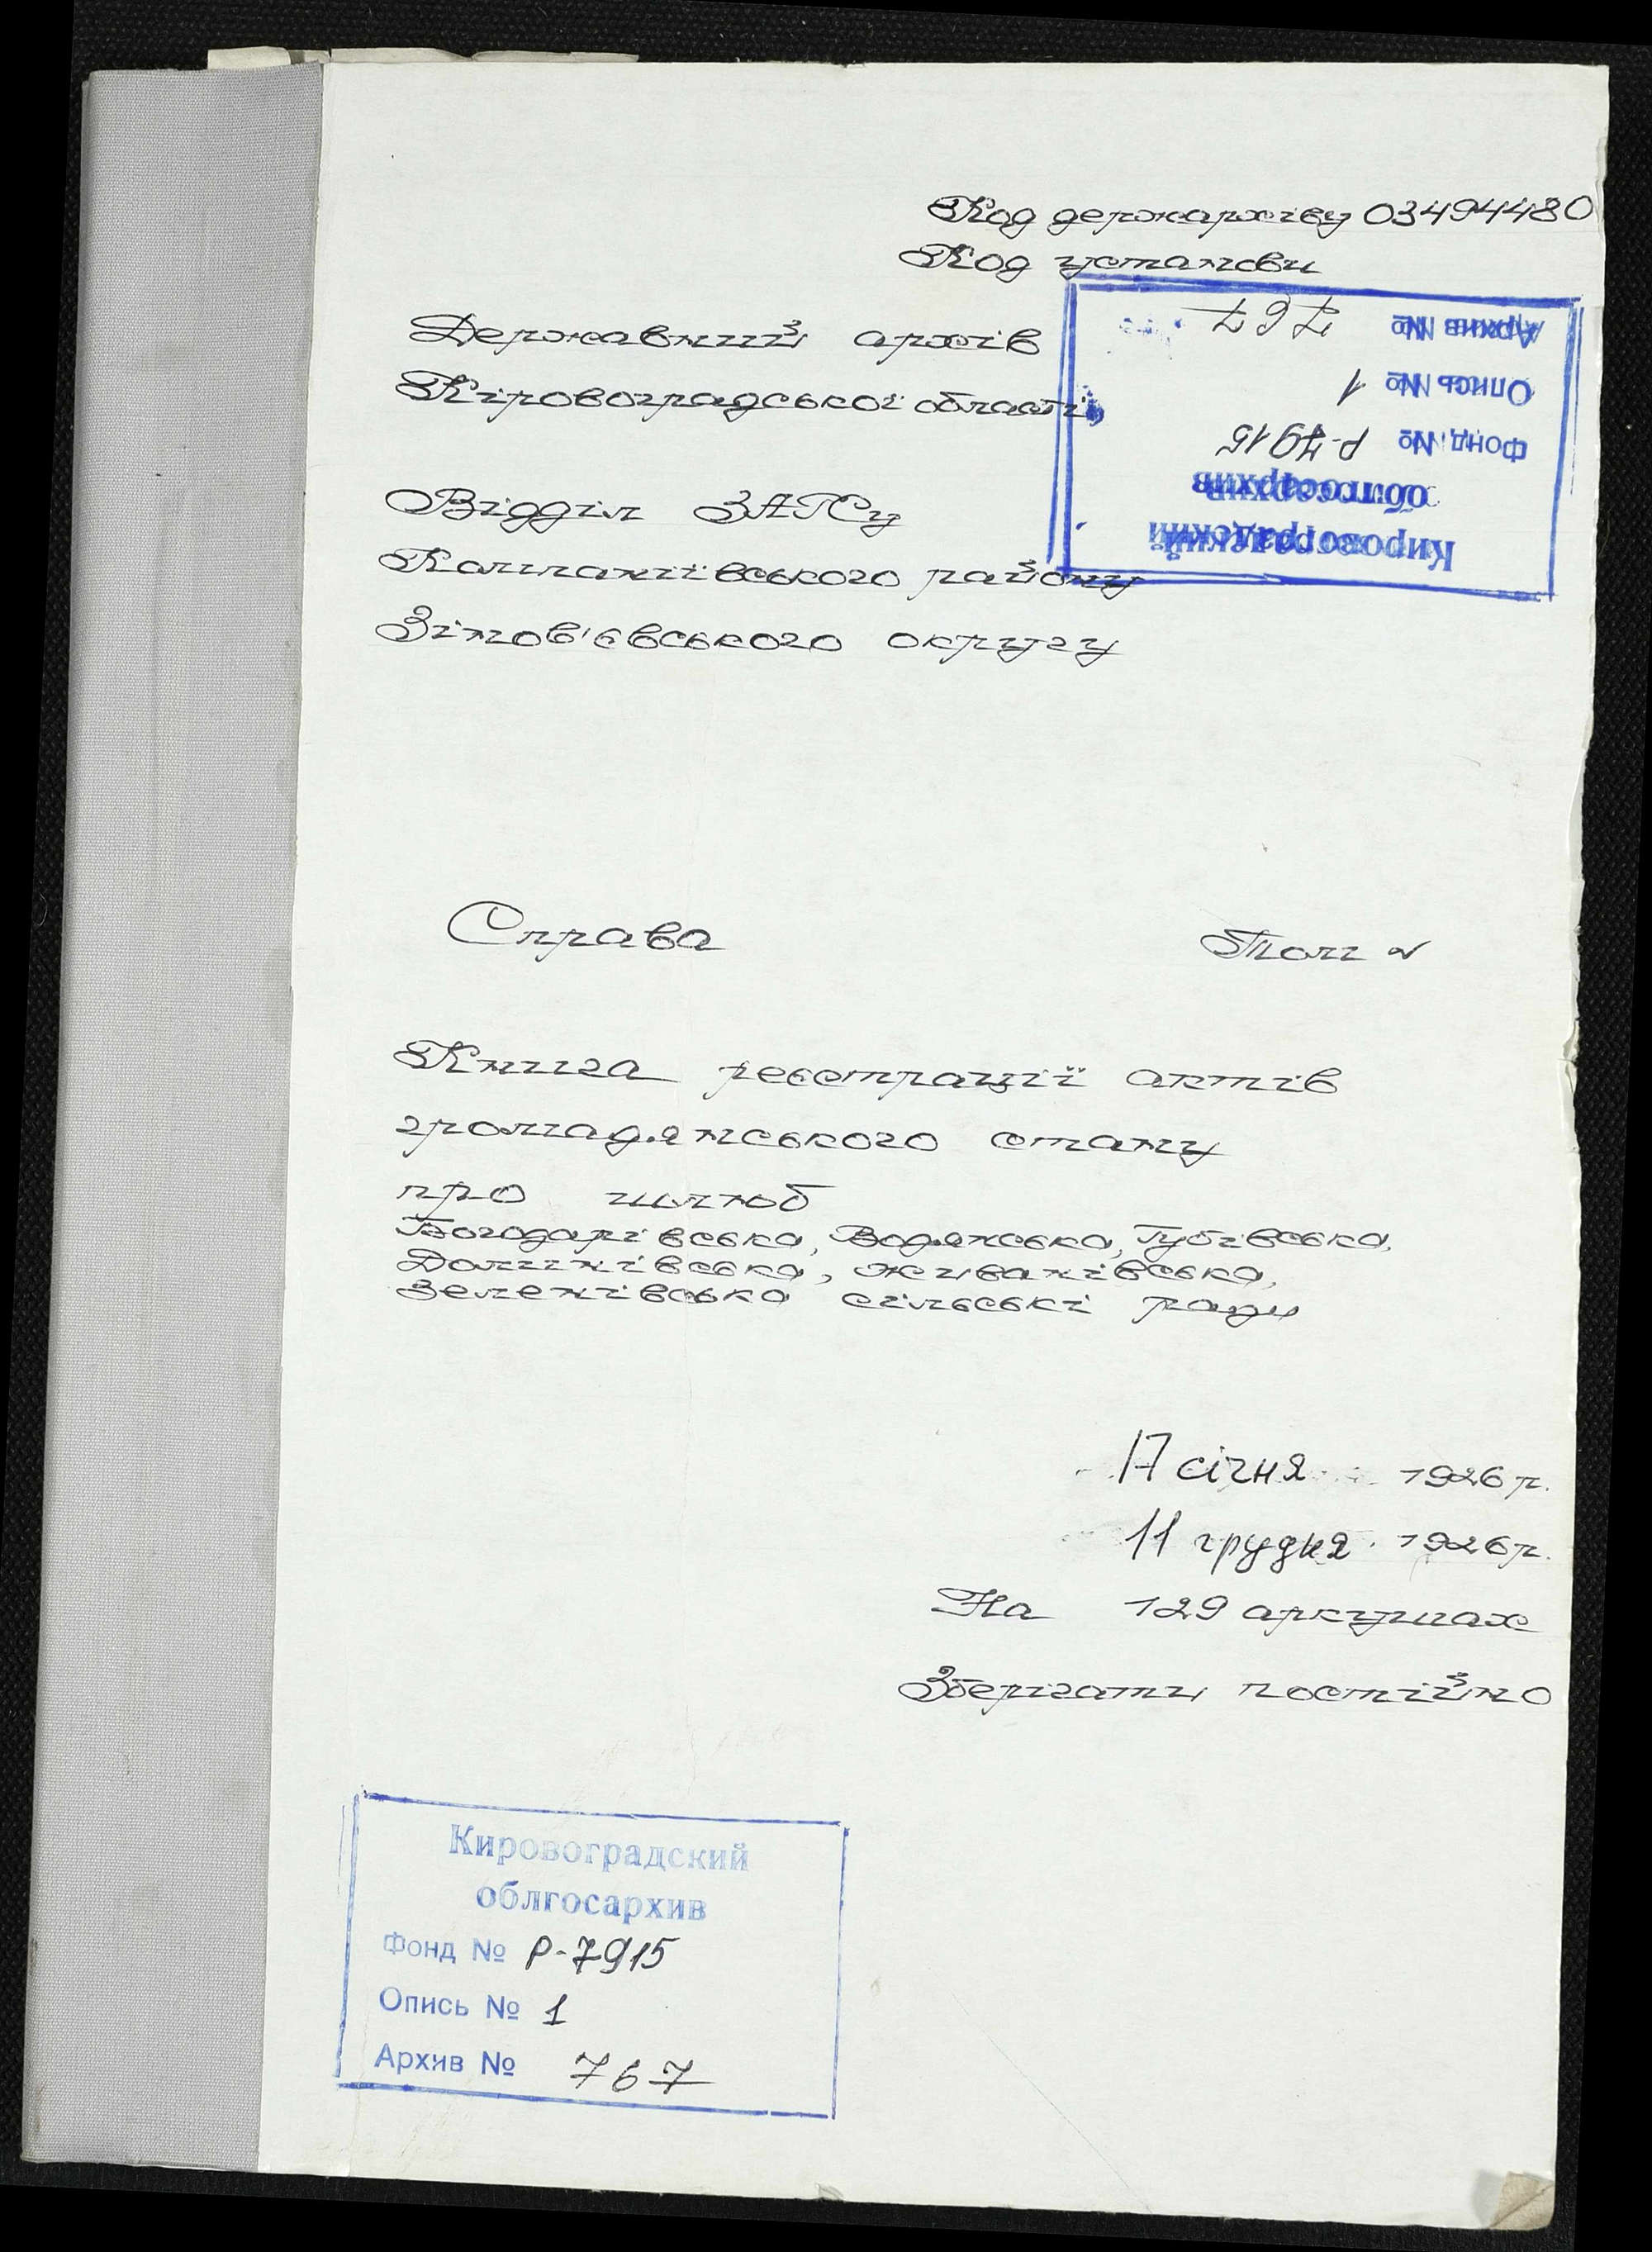 Код держархіву 03494480
Код установи
Державний архів
Кіровоградської області
Архив № 767
Опись № 1
Фонд № Р-7915
облгосархив
Кировоградский
Відділ ЗАГСу
Компаніївського району
Зінов'євського округу
Справа Том №
Книга реєстрації актів
громадянського стану
про шлюб
Богодарівська, Водянська, Губівська,
Долинівська, Живанівська,
Зеленівська сільські ради
17 січня 1926 р.
11 грудня 1926 р.
На 129 аркушах
Зберігати постійно
Кировоградский
облгосархив
Фонд № Р-7915
Опись № 1
Архив № 767